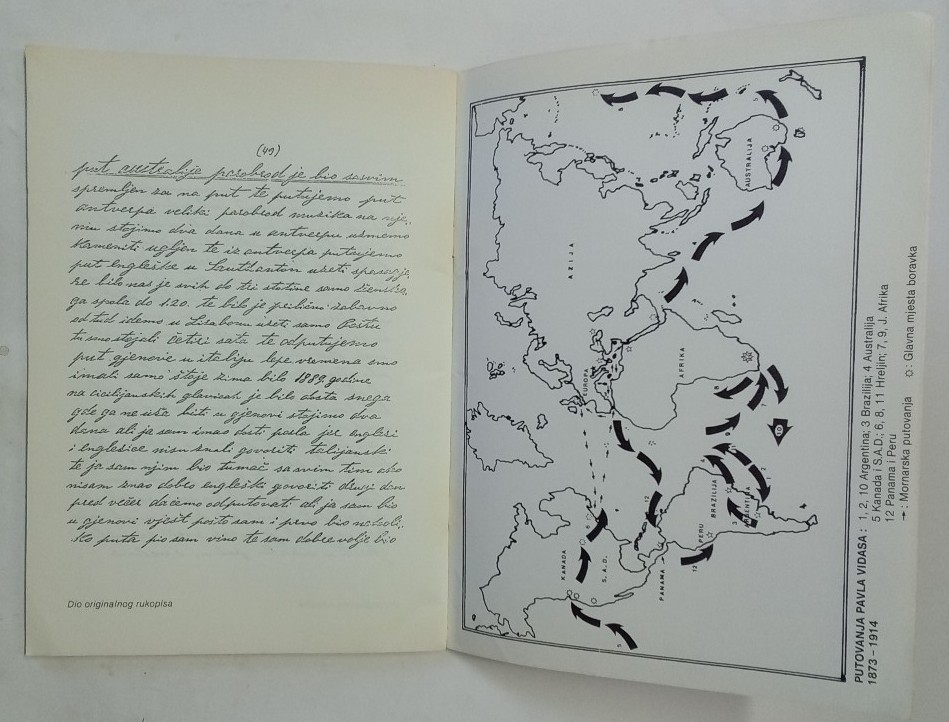 (49)
put australija parobrod je bio sasvim
spremljen za na put te putujemo put
antverpa veliki parobrod muzika na nje,
mu stojimo dva dana u antverpu uzmemo
Kameniti ugljen te iz antverpa putujemo
put engleške u Sauthanton uzeti
bilo nas je svih do tri stotine samo
ga spola do 120. te bilo je prilično zabavno
od tud idemo u Lisabonu uzeti samo Poštu
tu smo stojali četiri sata te odputujemo
put gjenove u italiju lepe vremena smo
imali samo štoje zima bilo 1889 godine
na cicilijanskih glavicah je bilo dosta snega
gde ga ne uže biti u gjenovi stojimo dva
dana ali ja sam imao dosti posla jer engleri
i englesice nisu znali govoriti talijanski
te ja sam njim bio tumač sasvim tim ako
nisam znao dobro engleski govoriti drugi dan
pred večer daćemo odputovati ali ja sam bio
u gjenovi vješt pošto sam i prvo bio
ko puta pio sam vino te sam dobre volje bio
Dio originalnog rukopisa
AZIJA
AUSTRALIJA
EUROPA
AFRIKA
KANADA
S.A.D.
PANAMA
PERU
BRAZILIJA
ARGENTINA
PUTOVANJA PAVLA VIDASA: 1, 2, 10 Argentina; 3 Brazilija; 4 Australija
1873 – 1914
5 Kanada i S.A.D.; 6, 8, 11 Hreljin; 7, 9, J. Afrika
12 Panama i Peru
: Mornarska putovanja : Glavna mjesta boravka